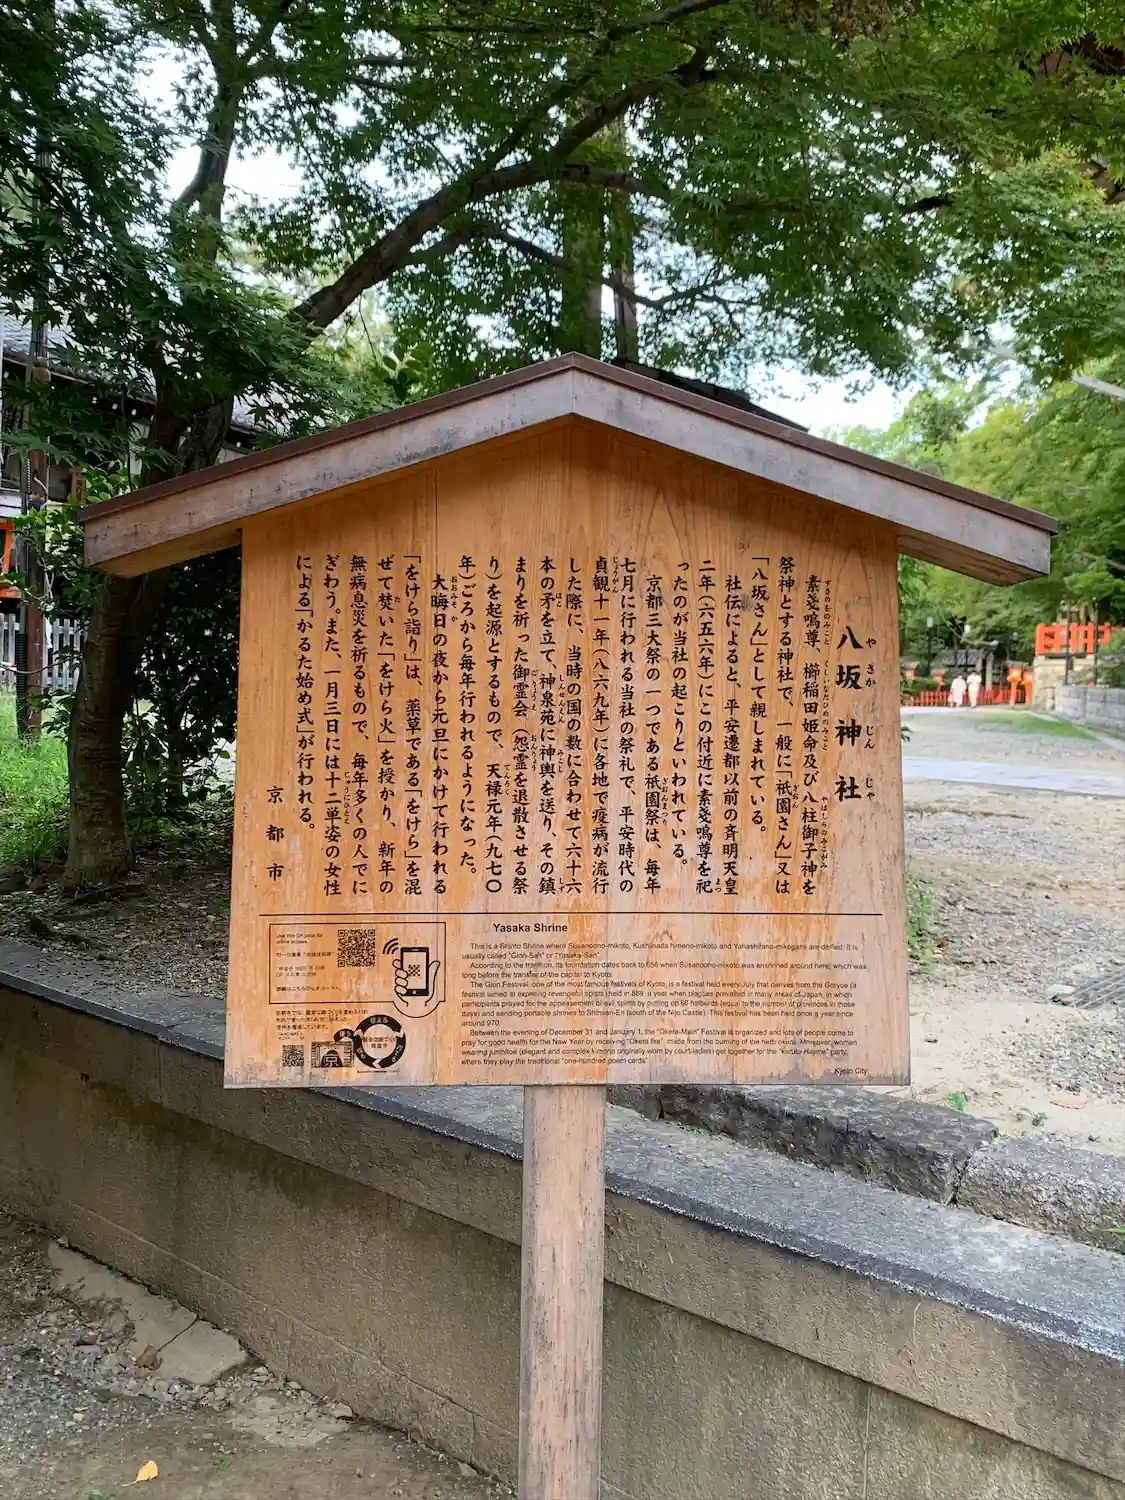 八坂神社
やさかじんじゃ
素戔嗚尊、櫛稲田姫命及び八柱御子神を
祭神とする神社で、一般に「祇園さん」又は
「八坂さん」として親しまれている。
社伝によると、平安遷都以前の斉明天皇
二年(六五六年)にこの付近に素戔嗚尊を祀
ったのが当社の起こりといわれている。
京都三大祭の一つである祇園祭は、毎年
七月に行われる当社の祭礼で、平安時代の
貞観十一年(八六九年)に各地で疫病が流行
した際に、当時の国の数に合わせて六十六
本の矛を立て、神泉苑に神輿を送り、その鎮
まりを祈った御霊会(怨霊を退散させる祭
り)を起源とするもので、天禄元年(九七〇
年)ごろから毎年行われるようになった。
大晦日の夜から元旦にかけて行われる
「をけら詣り」は、薬草である「をけら」を混
ぜて焚いた「をけら火」を授かり、新年の
無病息災を祈るもので、毎年多くの人でに
ぎわう。また、一月三日には十二単姿の女性
による「かるた始め式」が行われる。
京都市
Yasaka Shrine
This is a Shinto Shrine where Susanoono-mikoto, Kushiinada himeno-mikoto and Yahashirano-mikogami are deified. It is
usually called "Gion-San" or "Yasaka-San".
According to the tradition, its foundation dates back to 656 when Susanoono-mikoto was enshrined around here, which was
long before the transfer of the capital to Kyoto.
The Gion Festival, one of the most famous festivals of Kyoto, is a festival held every July that derives from the Goryoe (a
festival aimed at expelling revengeful spirits) held in 869, a year when plagues prevailed in many areas of Japan, in which
participants prayed for the appeasement of evil spirits by putting up 66 halberds (equal to the number of provinces in those
days) and sending portable shrines to Shinsen-En (south of the Nijo Castle). This festival has been held once a year since
around 970.
Between the evening of December 31 and January 1, the "Okera-Mairi" Festival is organized and lots of people come to
pray for good health for the New Year by receiving "Okera fire" made from the burning of the herb okera. Moreover, women
wearing junihitoe (elegant and complex kimono originally worn by court-ladies) get together for the "karuta-Hajime" party,
where they play the traditional "one-hundred poem cards".
Kyoto City
Use this QR code for
online access.